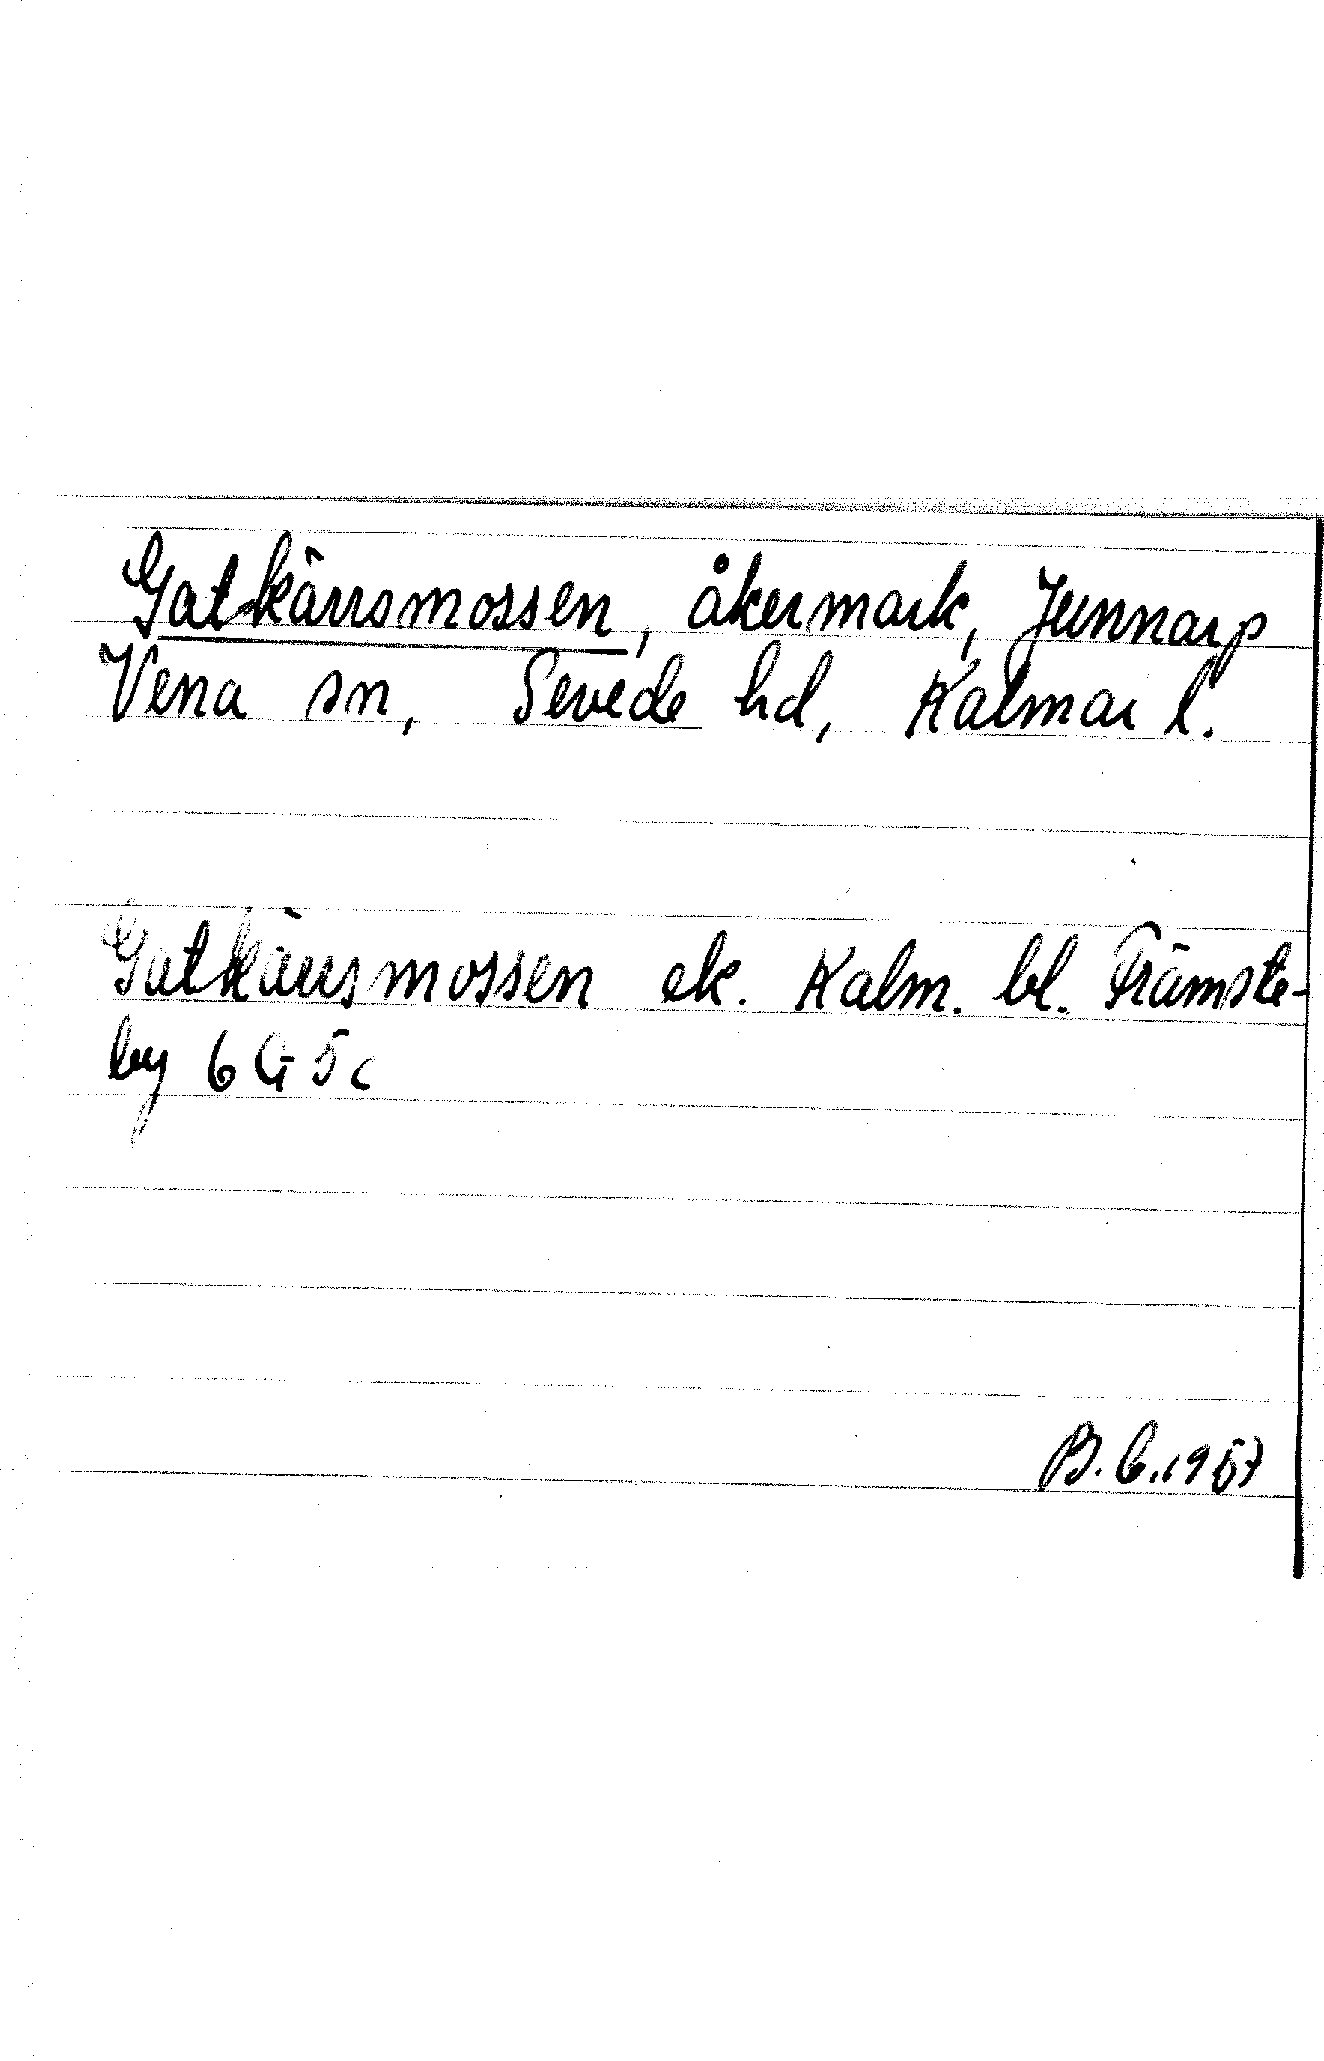 Gatkärrsmossen, åkermark, Junnarp
Vena sn, Sevede hd, Kalmar l.
Gatkärrsmossen ek. Kalm. bl. Främste-
by 6 G 5 c
B. C. 1967